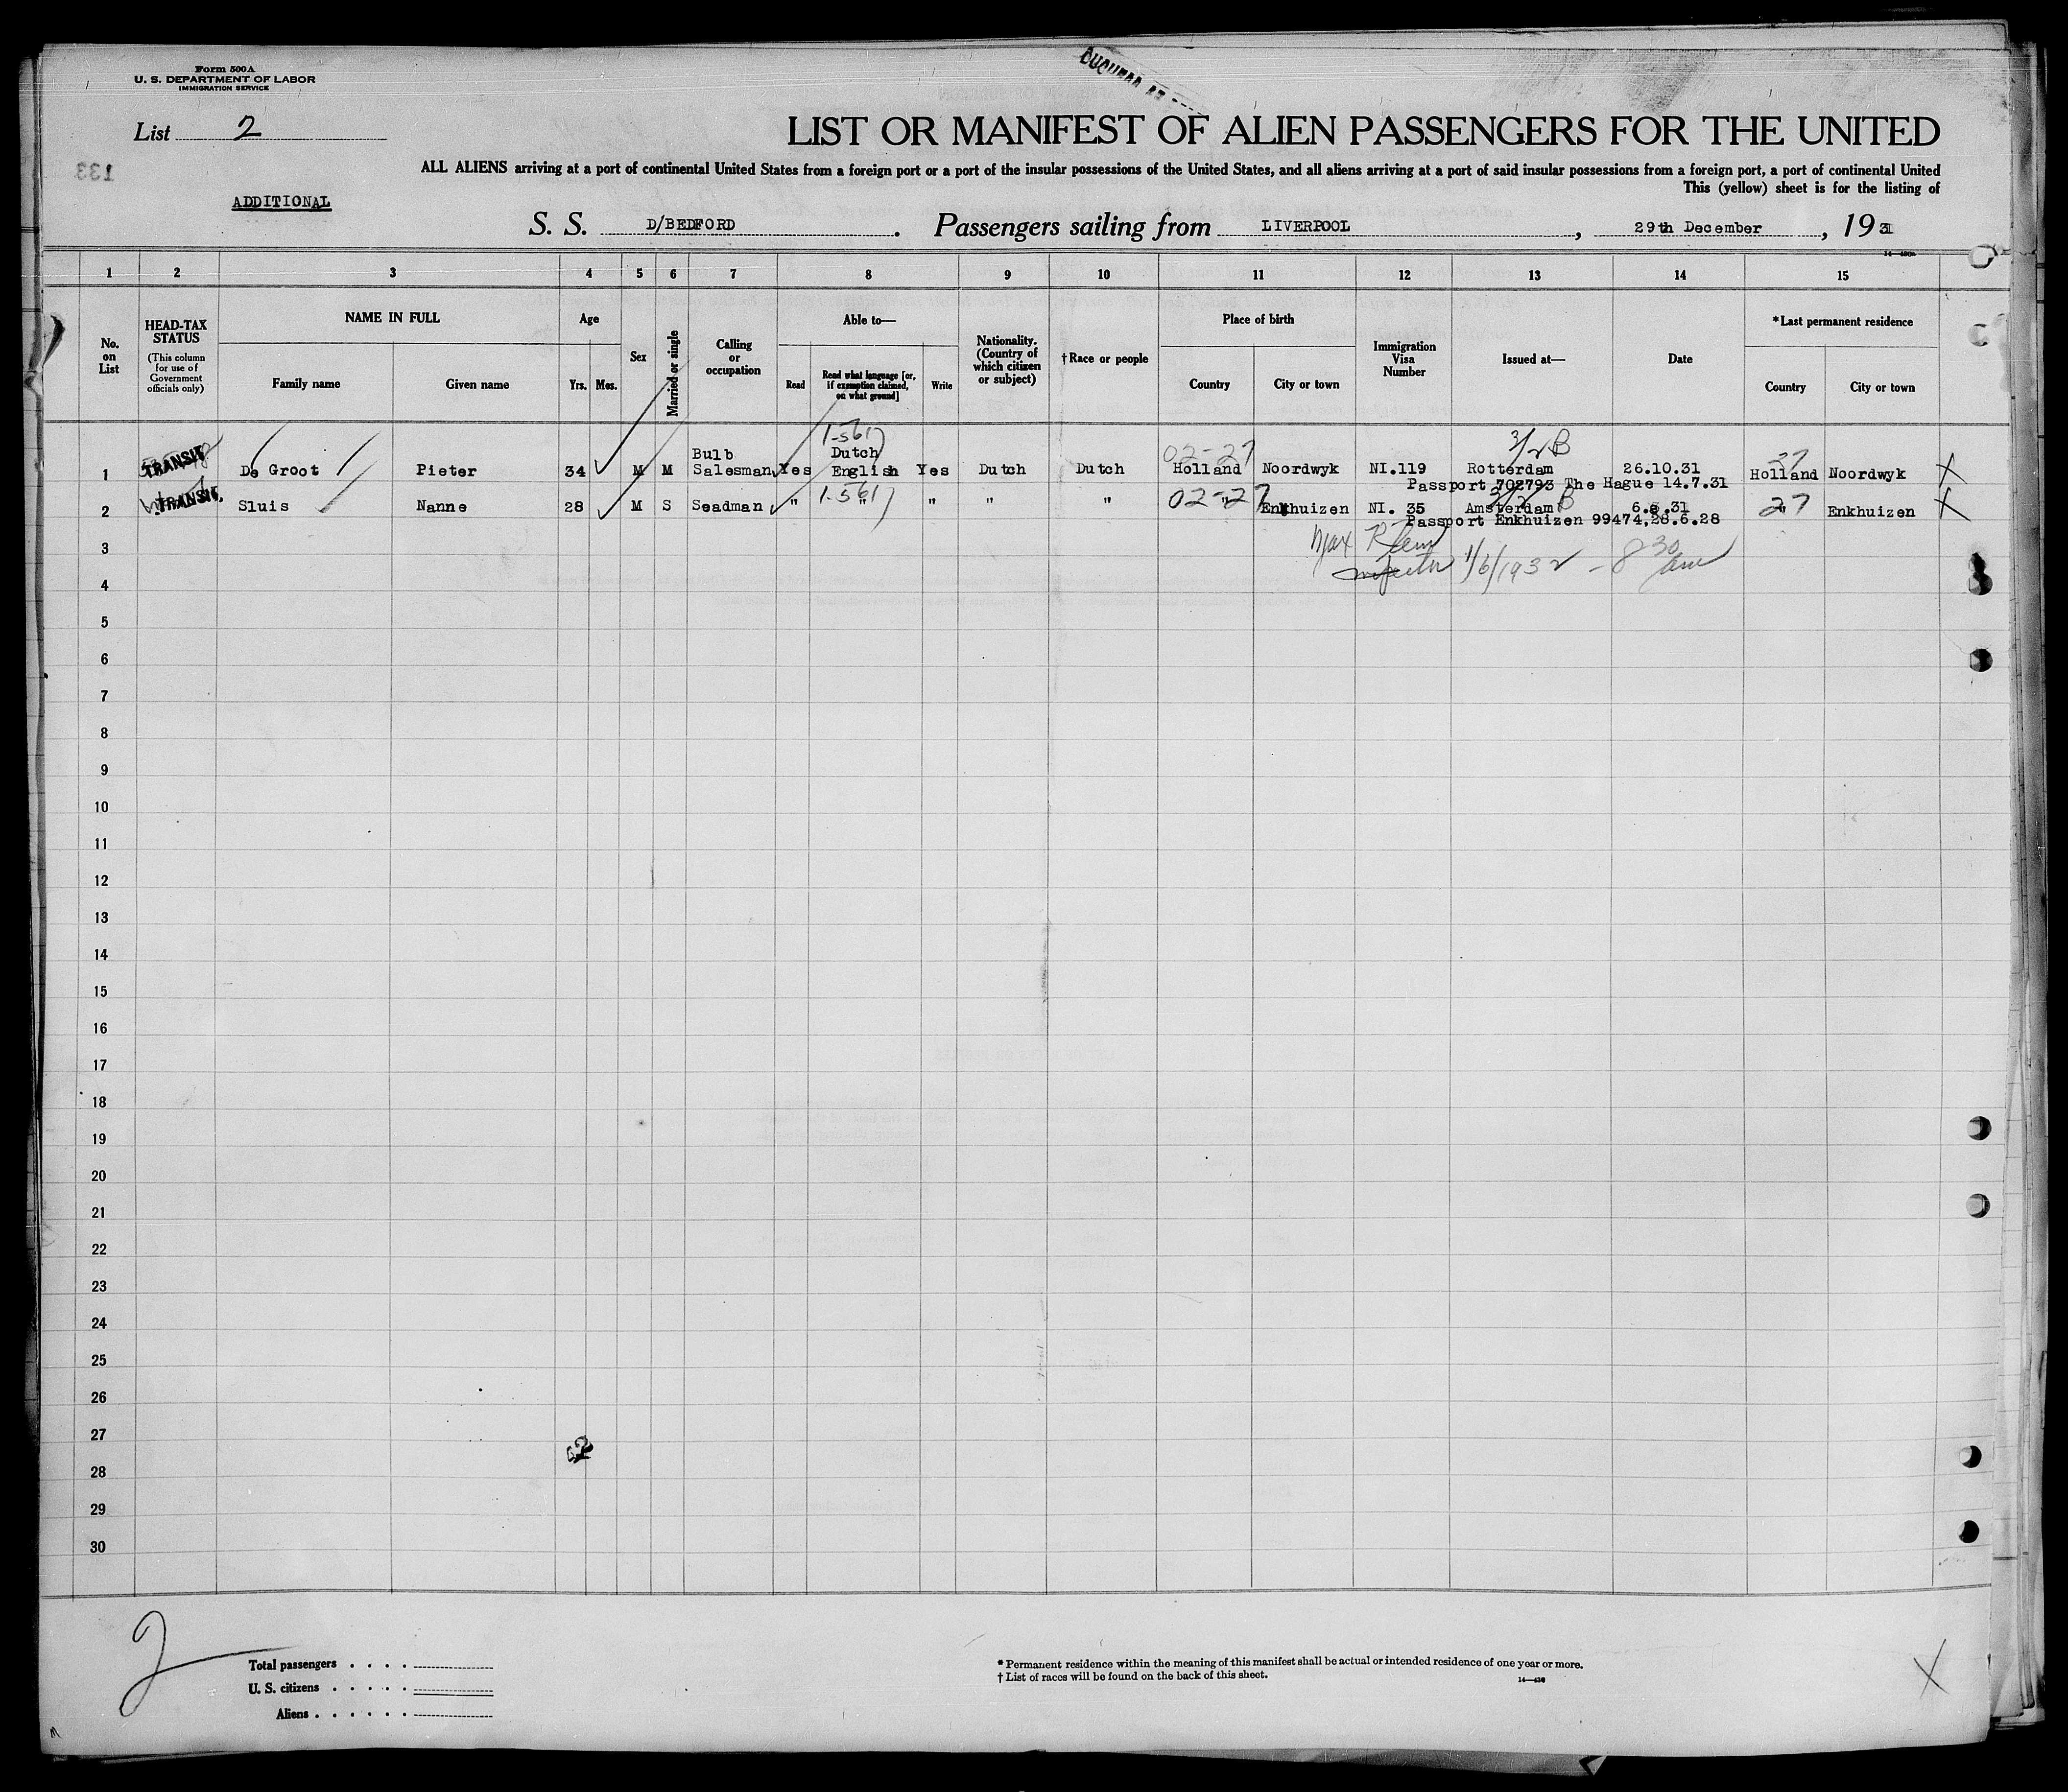 Form 500A
U. S. DEPARTMENT OF LABOR
IMMIGRATION SERVICE
List 2
LIST OR MANIFEST OF ALIEN PASSENGERS FOR THE UNITED
133
ALL ALIENS arriving at a port of continental United States from a foreign port or a port of the insular possessions of the United States, and all aliens arriving at a port of said insular possessions from a foreign port, a port of continental United
This (yellow) sheet is for the listing of
ADDITIONAL
S. S. D/BEDFORD . Passengers sailing from LIVERPOOL , 29th December , 1931
1 2 3 4 5 6 7 8 9 10 11 12 13 14 15
No. on List
HEAD-TAX STATUS (This column for use of Government officials only)
NAME IN FULL
Family name Given name
Age
Yrs. Mos.
Sex
Married or single
Calling or occupation
Able to—
Read Read what language [or, if exemption claimed, on what ground] Write
Nationality. (Country of which citizen or subject)
†Race or people
Place of birth
Country City or town
Immigration Visa Number
Issued at—
Date
*Last permanent residence
Country City or town
1 TRANSIT De Groot Pieter 34 M M Bulb Salesman Yes Dutch English Yes Dutch Dutch 02-27 Holland Noordwyk NI.119 3/2 B Rotterdam 26.10.31 27 Holland Noordwyk X
Passport 702793 The Hague 14.7.31
2 TRANSIT Sluis Nanne 28 M S Seadman " " " " " 02-27 " Enkhuizen NI. 35 Amsterdam 27 " Enkhuizen X
Passport Enkhuizen 99474,28.6.28
3 Max
4 1/6/1932 - 8 30 am
5
6
7
8
9
10
11
12
13
14
15
16
17
18
19
20
21
22
23
24
25
26
27
28
29
30
2
Total passengers . . . .
U. S. citizens . . . . .
Aliens . . . . . .
* Permanent residence within the meaning of this manifest shall be actual or intended residence of one year or more.
† List of races will be found on the back of this sheet.
X